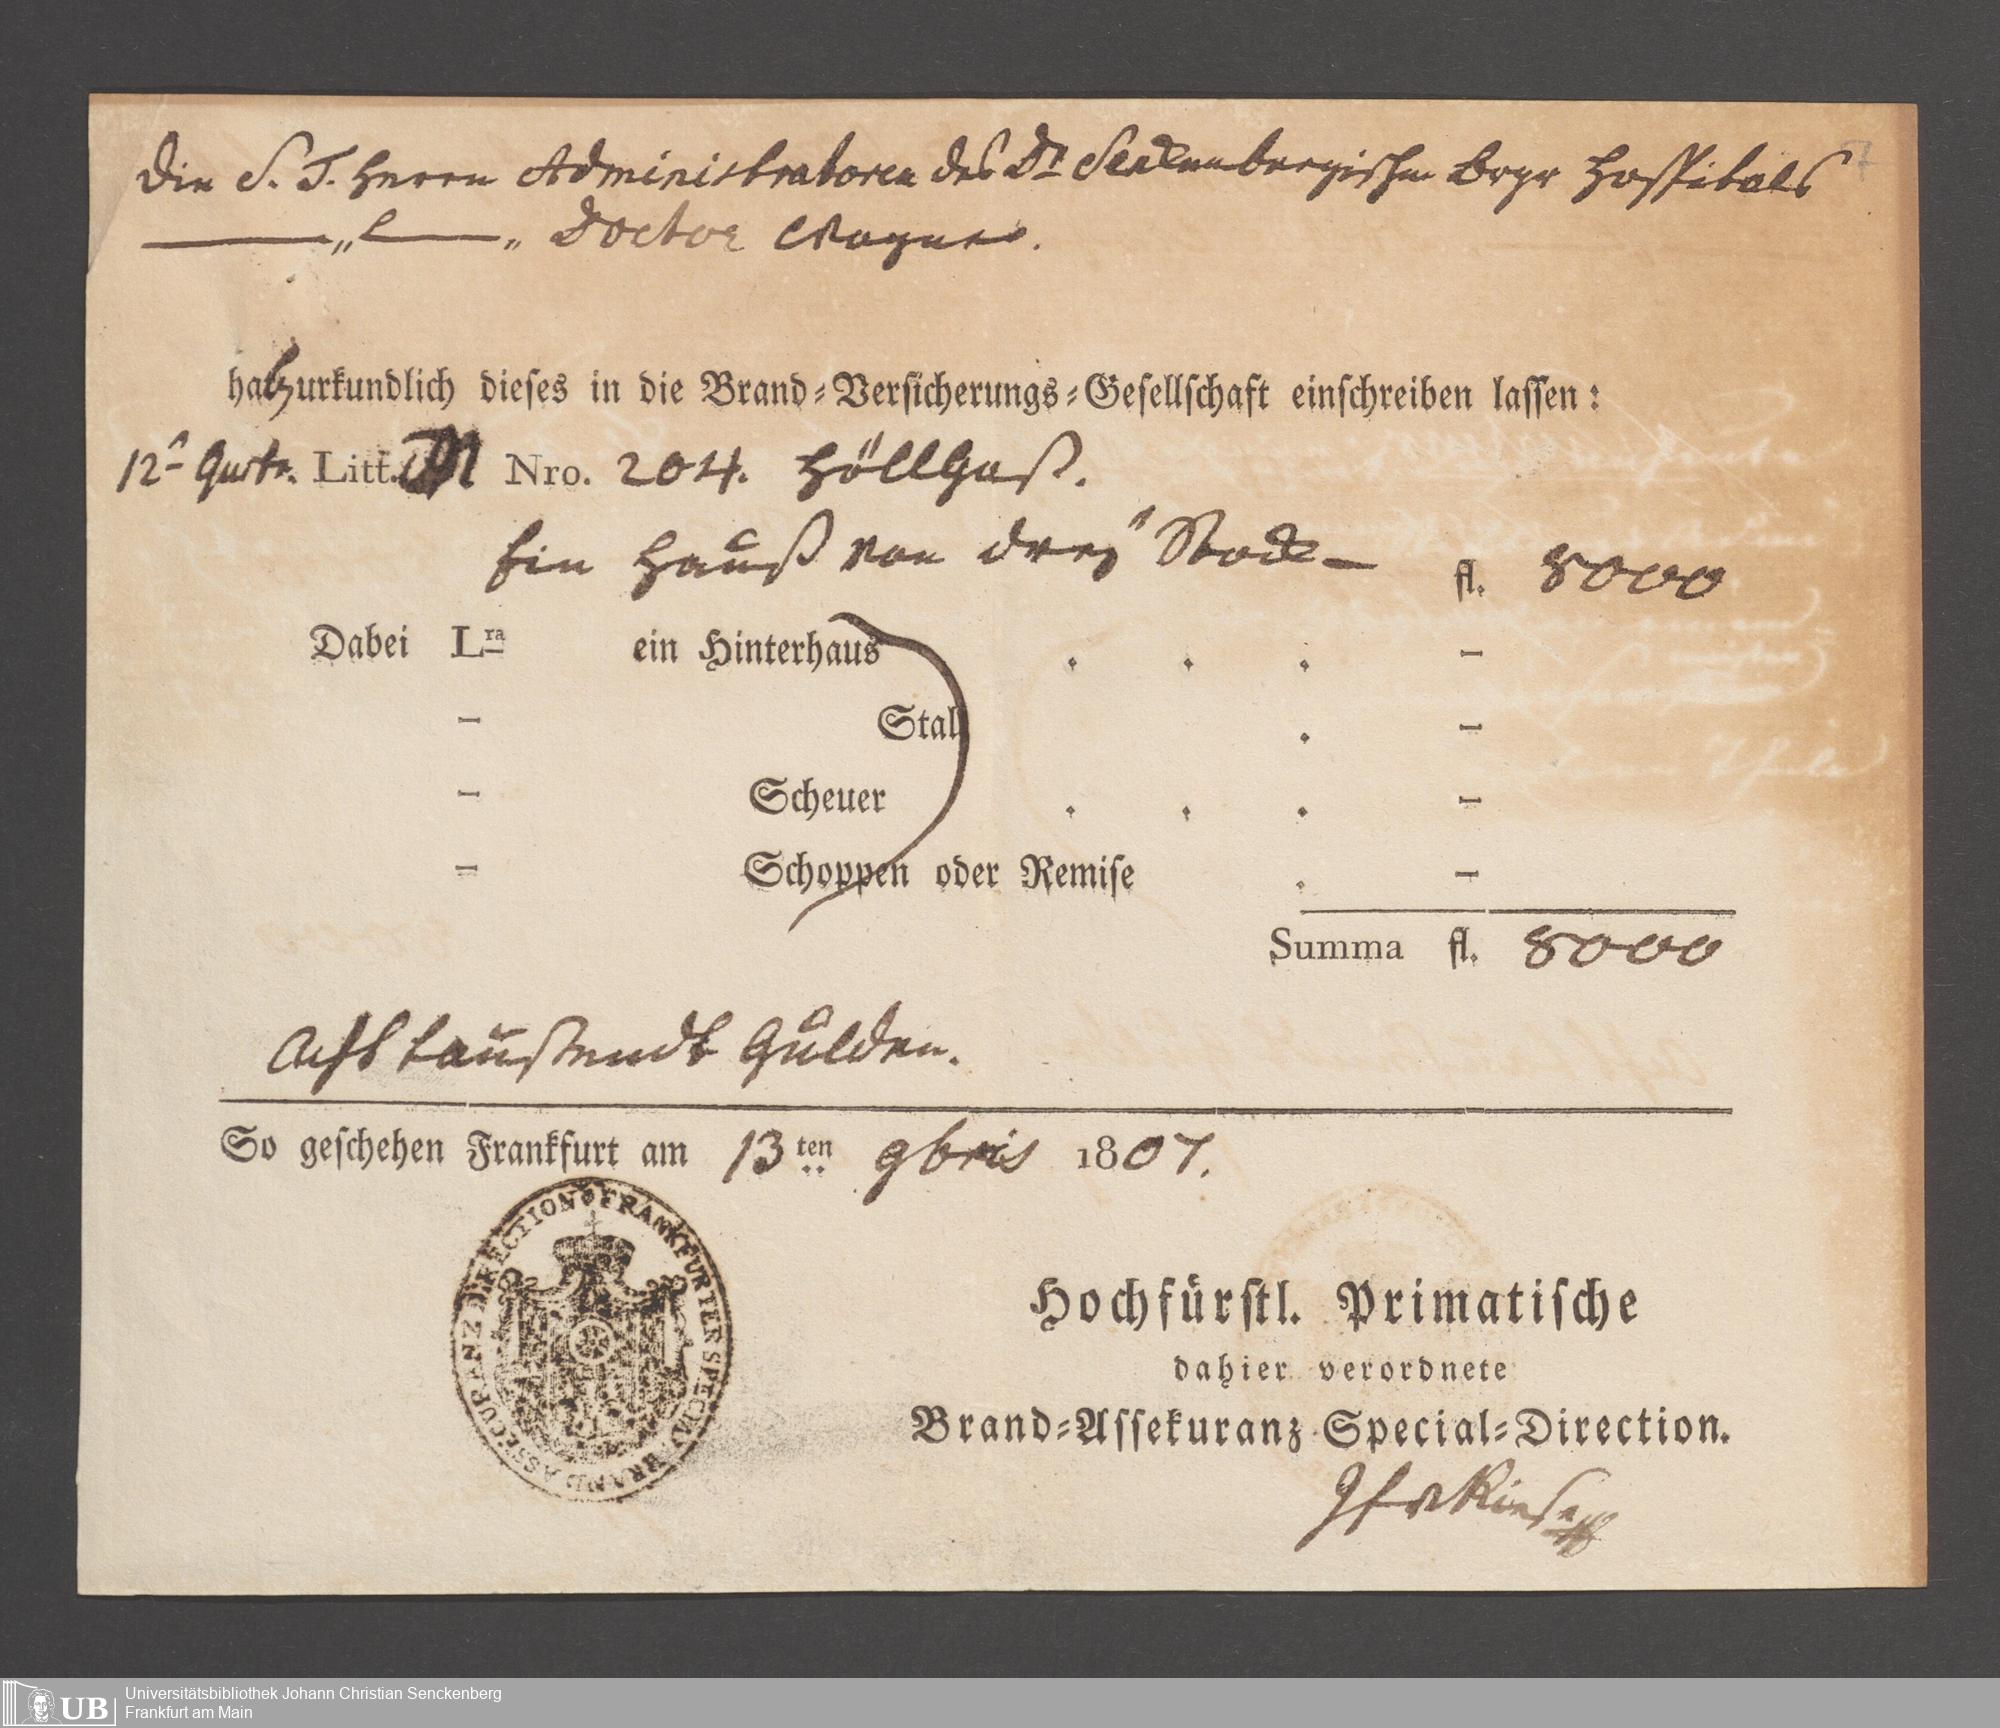 Die S. T. Herrn Administratoren des Dr Senckenbergischen Brgr Hospitals
" " Doctor Wagner.
haben urkundlich dieses in die Brand-Versicherungs-Gesellschaft einschreiben lassen:
12n Quartr. Litt. M Nro. 204. Höllgaß.
Ein Hauß von dreÿ Stock — fl. 8000
Dabei Lra ein Hinterhaus . . . —
— Stall . —
— Scheuer . . . —
— Schoppen oder Remise . —
Summa fl. 8000
Acht taußendt Gulden.
So geschehen Frankfurt am 13ten 9bris 1807.
FRANKFURTER SPECIAL BRAND ASSECURANZ DIRECTION
Hochfürstl. Primatische
dahier verordnete
Brand-Assekuranz Special-Direction.
Riese
UB
Universitätsbibliothek Johann Christian Senckenberg
Frankfurt am Main